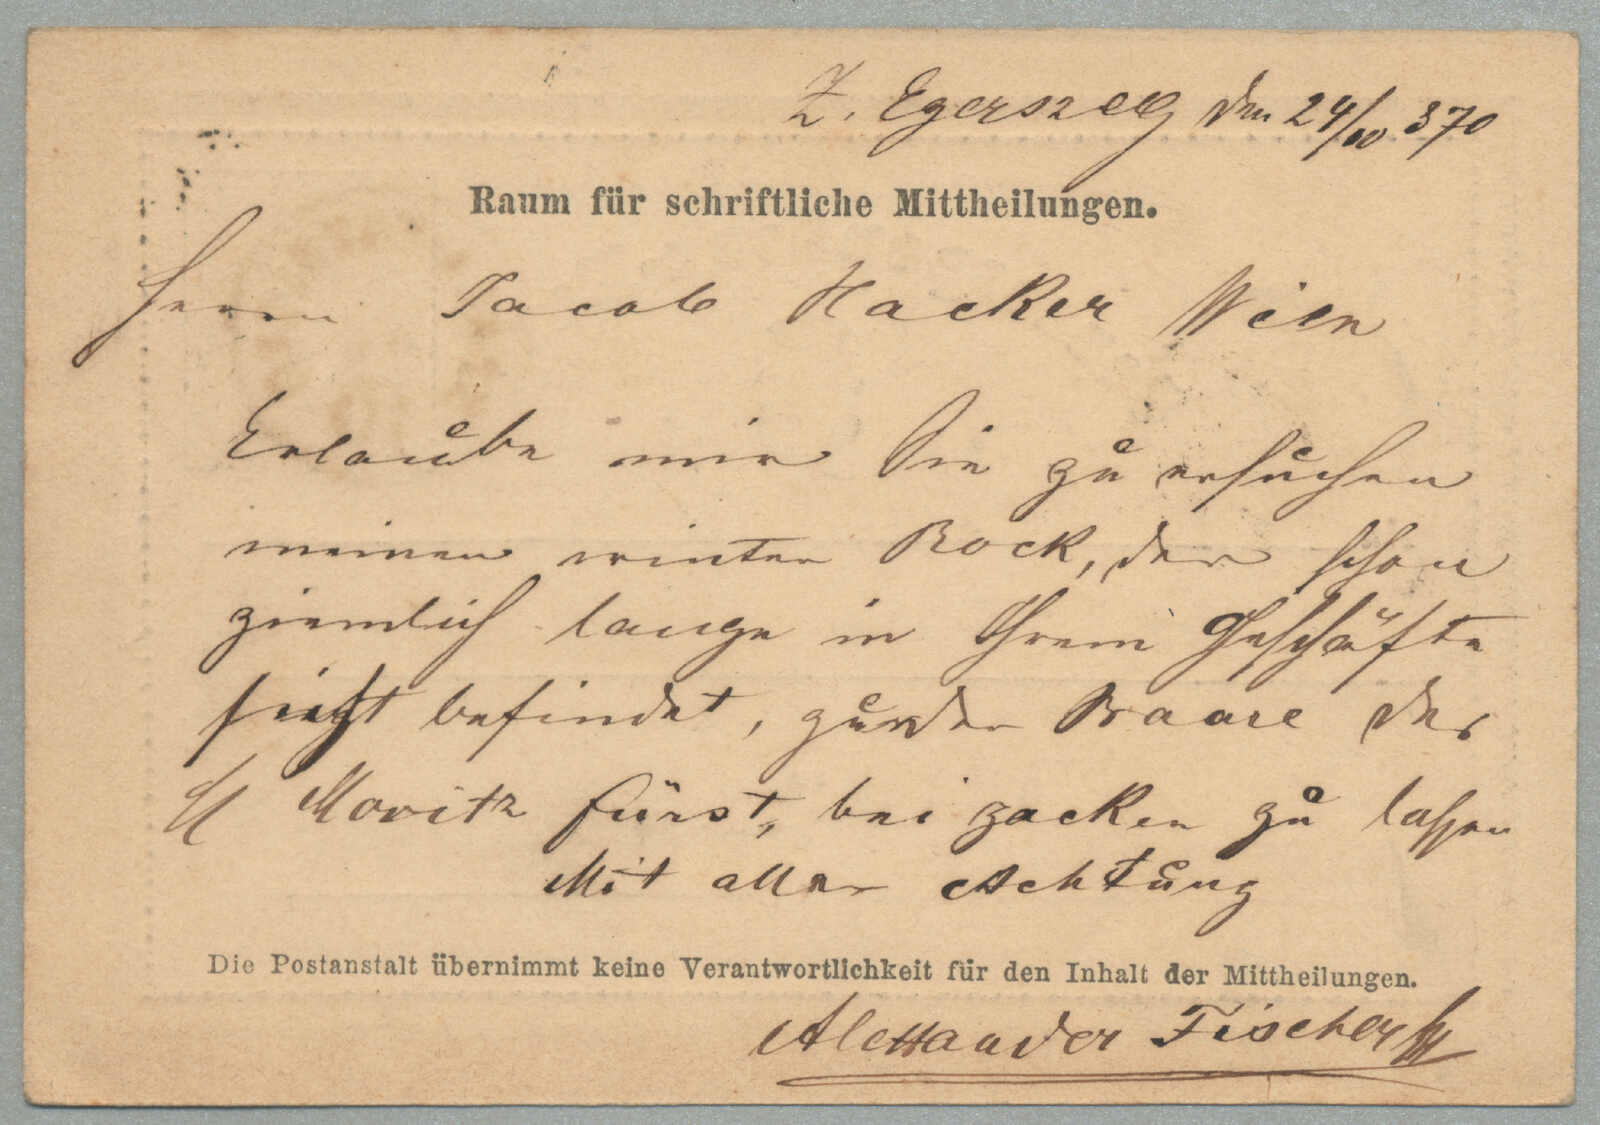 Z. Egerszeg den 24/10 870
Raum für schriftliche Mittheilungen.
Herrn Jacob Hacker Wien
Erlaube mir Sie zu ersuchen
meinen winter Rock, der schon
ziemlich lange in Ihrem Geschäfte
sich befindet, zu der Waare des
H Moritz Fürst, bei packen zu lassen
Mit aller Achtung
Die Postanstalt übernimmt keine Verantwortlichkeit für den Inhalt der Mittheilungen.
Alexander Fischer